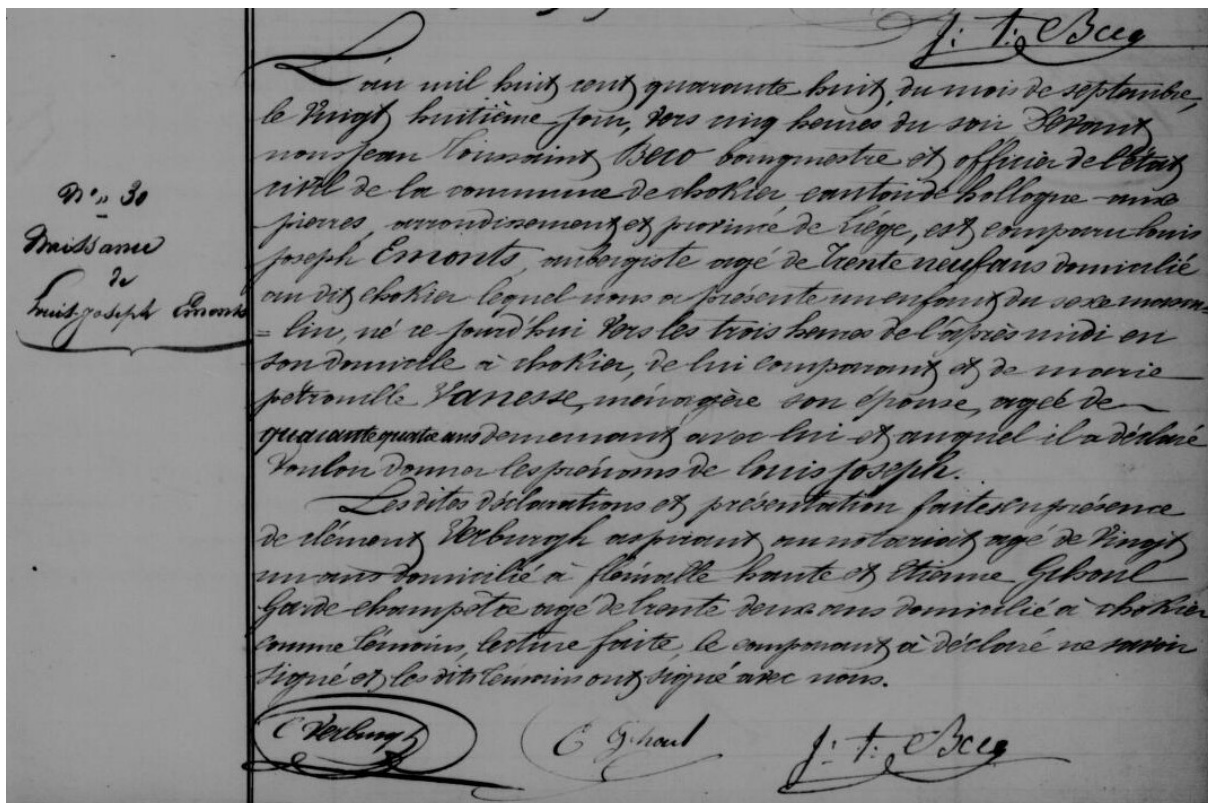 J: T: Beco
L'an mil huit cent quarante huit, du mois de septembre,
le Vingt huitième jour, vers cinq heures du soir Devant
nous Jean Toussaint Beco bourgmestre et officier de l'état
civil de la commune de chokier canton de hollogne aux
pierres, arrondissement et province de Liége, est comparu louis
joseph Emonts, aubergiste agé de Trente neuf ans domicilié
au dit chokier lequel nous a présenté un enfant du sexe mascu=
=lin, né ce jourd'hui vers les trois heures de l'après midi en
son domicile à chokier, de lui comparant et de marie
pétronille Vanesse, ménagère son épouse, agée de
quarante quatre ans demeurant avec lui et auquel il a déclaré
Vouloir donner les prénoms de louis joseph.
Les dites déclarations et présentation faites en présence
de clément Verburgh aspirant au notariat agé de Vingt
un ans domicilié à flémalle haute et Etienne Gihoul
Garde champetre agé de trente deux ans domicilié à chokier
comme témoins, lecture faite, le comparant à déclaré ne savoir
signé et les dits témoins ont signé avec nous.
N° 30
Naissance
de
Louis joseph Emonts
C Verburgh E Gihoul J: T: Beco